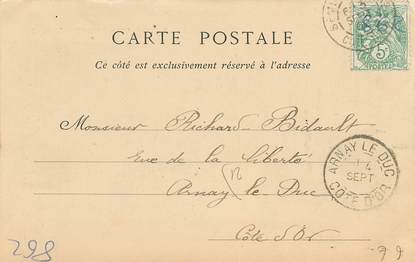 CARTE POSTALE
5c
Ce côté est exclusivement réservé à l'adresse
Monsieur Richard Bidault
Rue de la liberté
Arnay le Duc
Côte d'Or
ARNAY LE DUC
SEPT
COTE D'OR
298